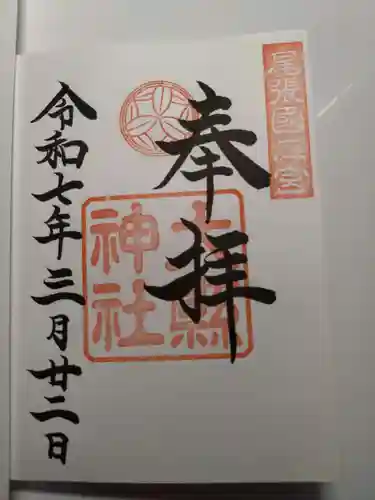 尾張國二之宮
奉拝
大縣神社
令和七年三月廿二日